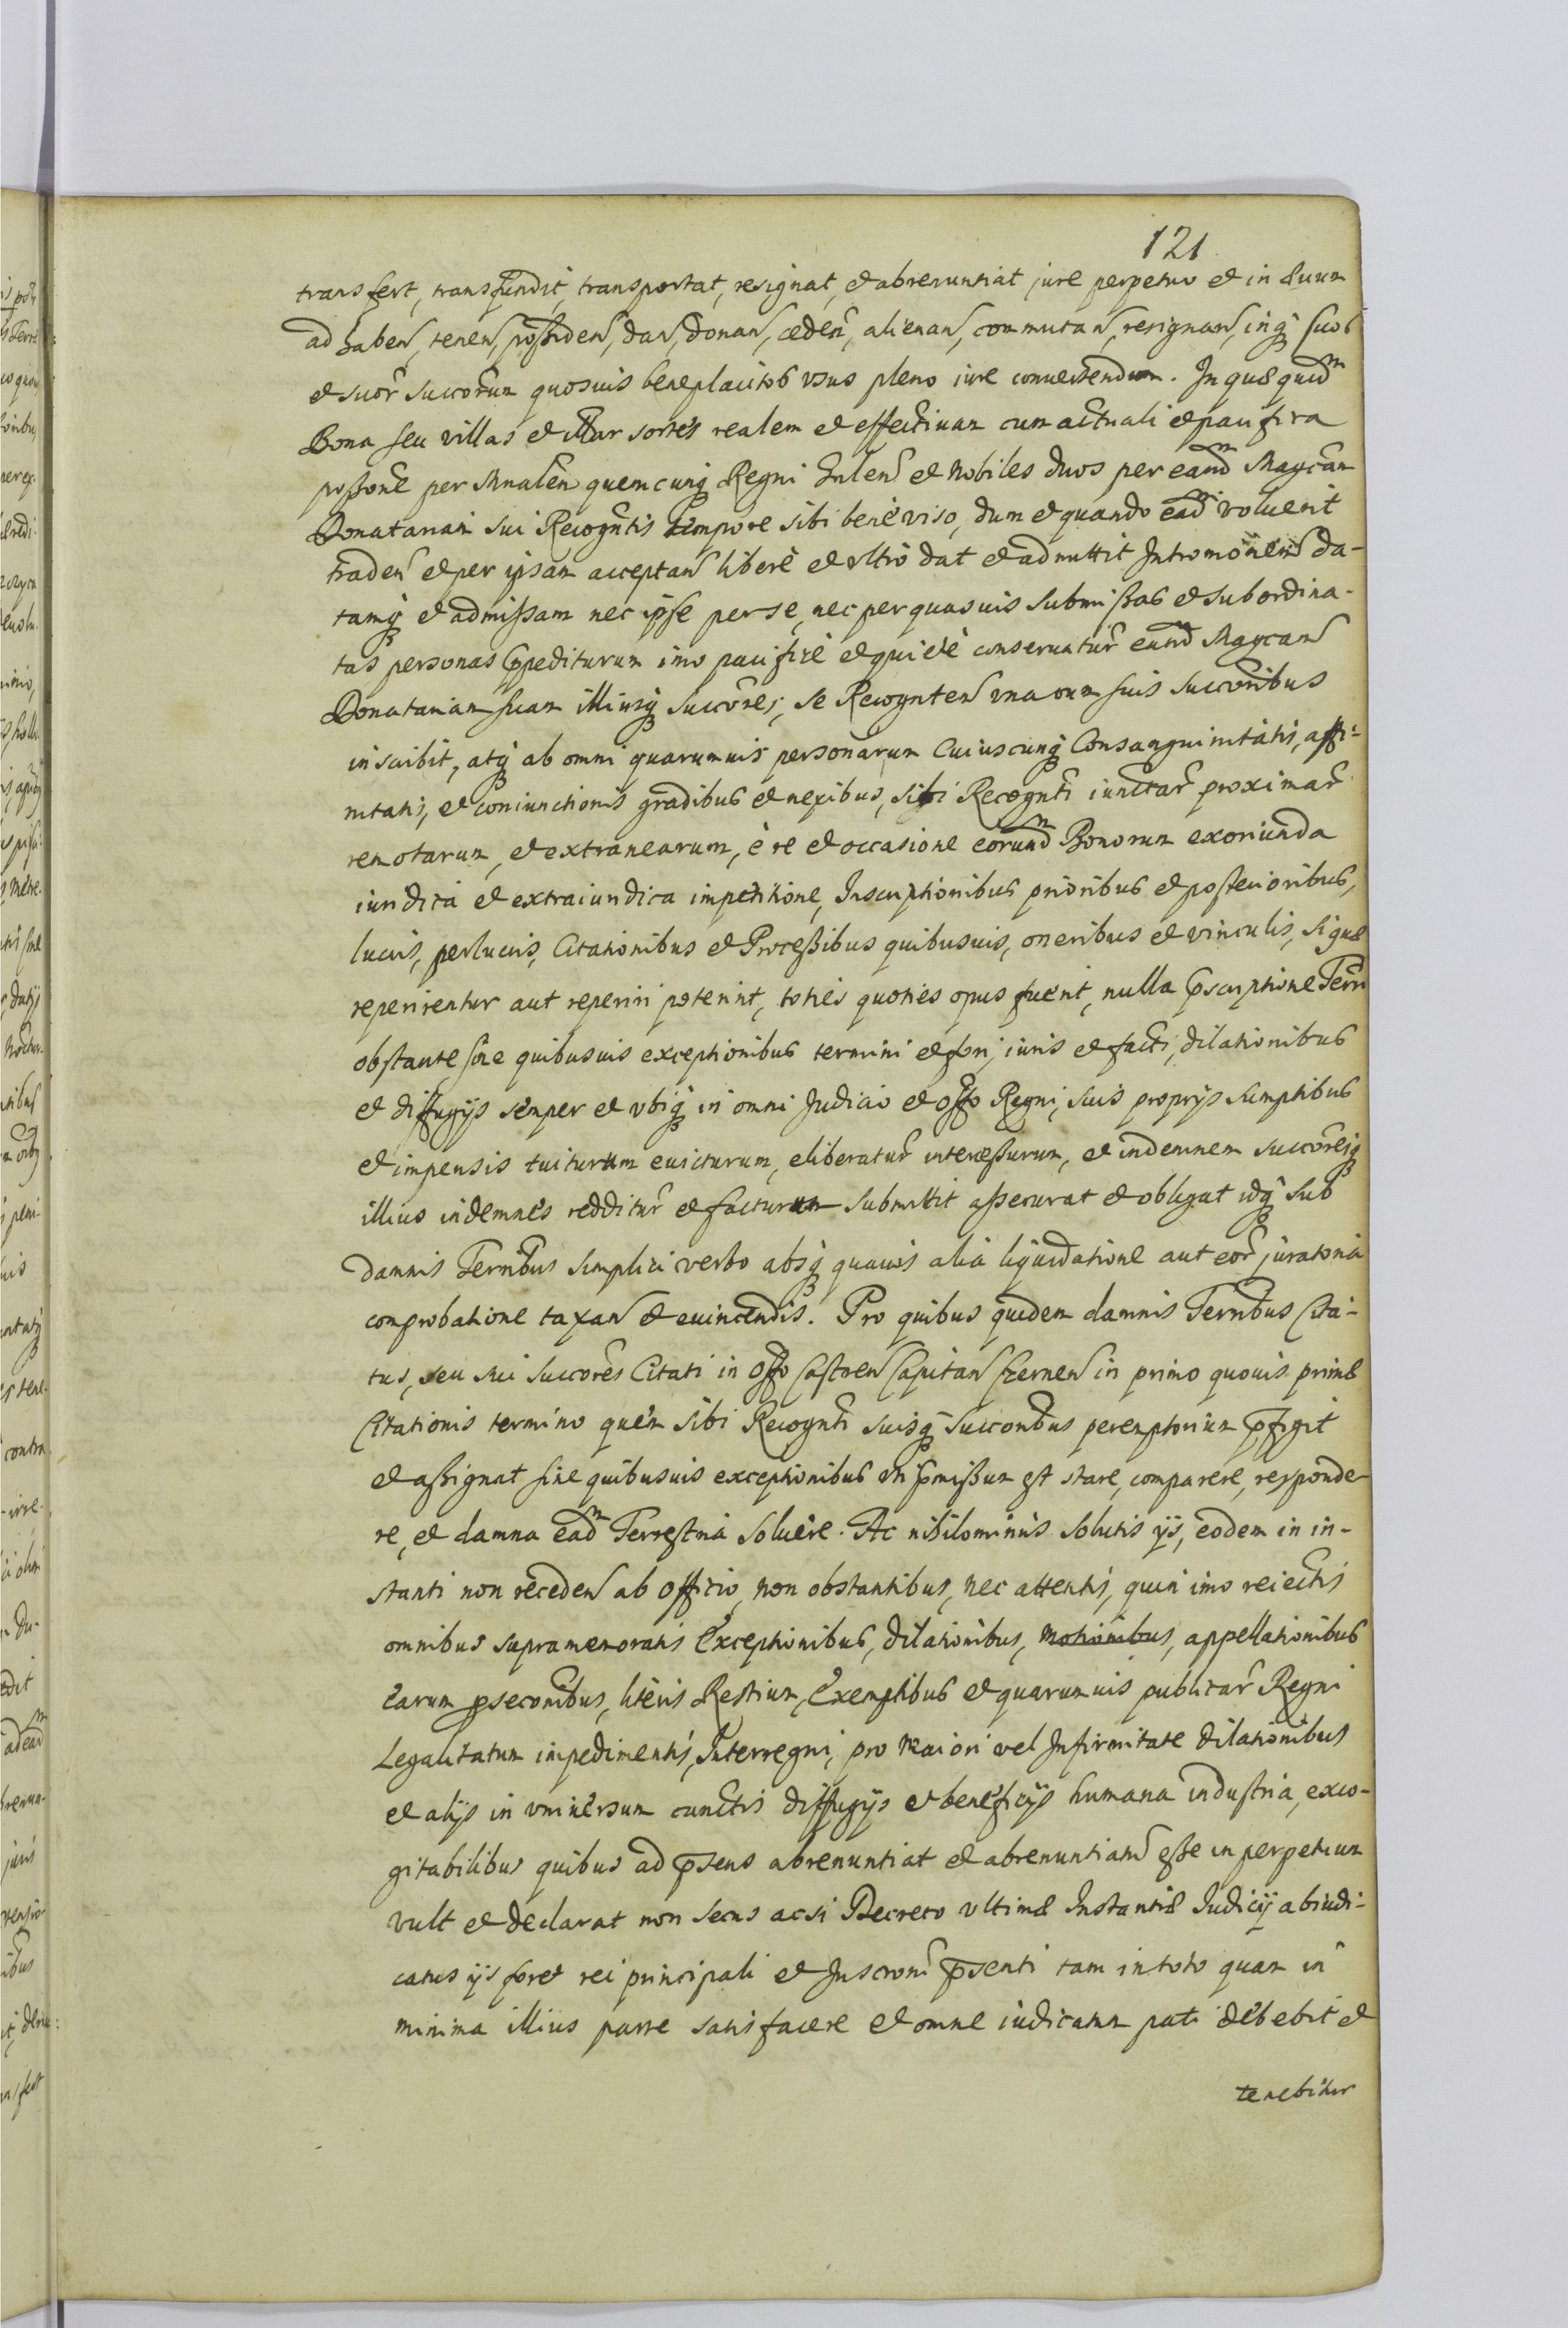 121
transfert, transfundit, transportat, resignat, et abrenuntiat jure perpetuo et in ævum
ad haben, tenen, possiden, dan, donan, ceden, alienan, commutan, resignan, inq suos
et suor succorum quosuis beneplacitos vsus pleno iure conuertendum. In quæ quidm
Bona seu villas et illar sortes realem et effectiuam cum actuali et pacifica
possone per Mnalen quemcunq Regni Gnlen et Nobiles duos per eandm Magcam
Donatariam sui Recogntis tempore sibi benè viso, dum et quando eadm voluerit
traden et per ipsam acceptan liberè et vltrò dat et admittit Intromonem da-
tamq et admissam nec ipse per se, nec per quasuis submissas et subordina-
tas personas Jmpediturum imo pacificè et quietè conseruatur eand Magcam
Donatariam suam illiusq succores, se Recognten vna cum suis succoribus
inscribit, atq ab omni quarumuis personarum Cuiuscunq Consanguinitatis, affi-
nitatis, et coniunctionis gradibus et nexibus, sibi Recognti iunctar proximar
remotarum, et extranearum, è re et occasione eorundm Bonorum exoriunda
iuridica et extraiuridica impetitione, Inscriptionibus prioribus et posterioribus,
lucris, perlucris, Citationibus et Processibus quibusuis, oneribus et vinculis, si quæ
reperirentur aut reperiri poterint, toties quoties opus fuerit, nulla pscriptione Terri
obstante sine quibusuis exceptionibus termini et fori, iuris et facti, dilationibus
et diffugijs semper et vbiq in omni Judicio et offo Regni, suis proprijs sumptibus
et impensis tuiturum euicturum, eliberatur intercessurum, et indemnem succoresq
illius indemnes redditur et facturum submittit assecurat et obligat idq sub
damnis Terribus simplici verbo absq quauis alia liquidatione aut eor juratoria
comprobatione taxan et euincendis. Pro quibus quidem damnis Terribus Cita-
tus, seu sui succores Citati in offo Castren Capitan Czernen in primo quouis primæ
Citationis termino quem sibi Recognti suisq succoribus peremptorium pfigit
et assignat sine quibusuis exceptionibus vti pmissum est stare, comparere, responde-
re, et damna eadm Terrestria soluere. Ac nihilominus solutis ijs, eodem in in-
stanti non receden ab officio, non obstantibus, nec attentis, quin imo reiectis
omnibus supramemoratis Exceptionibus, dilationibus, motionibus, appellationibus
earum psecoribus, literis Restium, Exemptibus et quarumuis publicar Regni
Legalitatum impedimentis, Interregni, pro maiori vel Infirmitate dilationibus
et alijs in vniuersum cunctis diffugijs et beneficijs humana industria, exco-
gitabilibus quibus ad psens abrenuntiat et abrenuntiatu esse in perpetuum
vult et declarat non secus ac si Decreto vltimæ Instantiæ Judicij abiudi-
catus ijs foret rei principali et Inscroni psenti tam in toto quam in
minima illius parte satisfacere et omne iudicatum pati debebit et
tenebitur